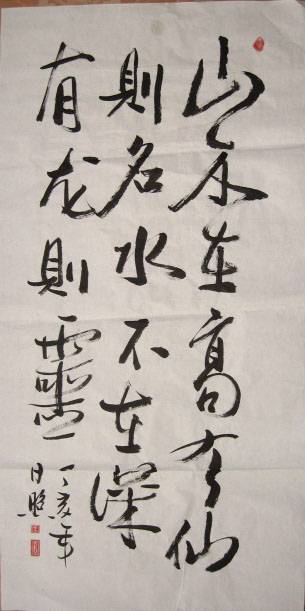 山不在高有仙
則名水不在深
有龙則靈
丁亥年
日照